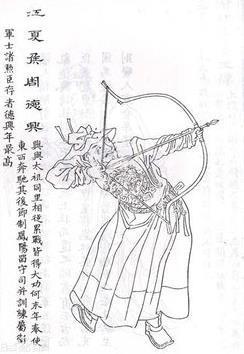 江夏侯周德興
興與太祖同里相從累戰皆得大功何末年奉使
東西奔馳其後節制鳳陽留守司并訓練屬衛
軍士諸勲臣存者德興年最高